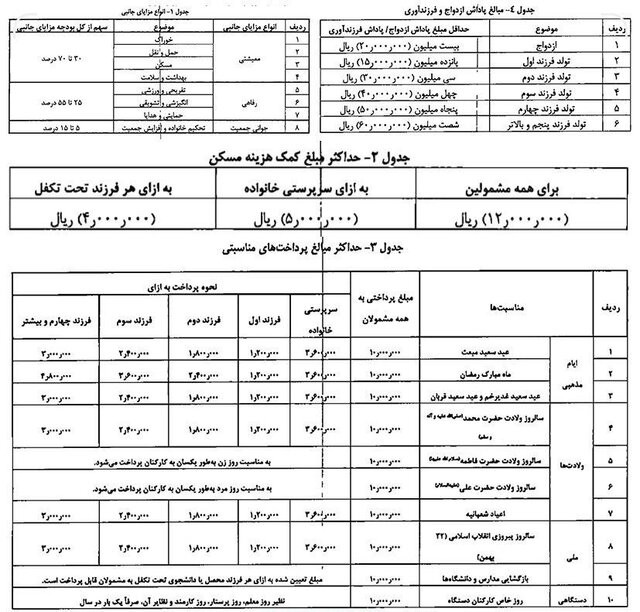 جدول ۱- انواع مزایای جانبی
ردیف | موضوع | انواع مزایای جانبی | سهم از کل بودجه مزایای جانبی
۱ | خوراک | معیشتی | ۳۰ تا ۷۰ درصد
۲ | حمل و نقل
۳ | مسکن
۴ | بهداشت و سلامت
۵ | تفریحی و ورزشی | رفاهی | ۲۵ تا ۵۵ درصد
۶ | انگیزشی و تشویقی
۷ | حمایتی و هدایا
۸ | تحکیم خانواده و افزایش جمعیت | جوانی جمعیت | ۵ تا ۱۵ درصد
جدول ٤- مبالغ پاداش ازدواج و فرزندآوری
ردیف | موضوع | حداقل مبلغ پاداش ازدواج/ پاداش فرزندآوری
۱ | ازدواج | بیست میلیون (۲۰٫۰۰۰٫۰۰۰) ریال
۲ | تولد فرزند اول | پانزده میلیون (۱۵٫۰۰۰٫۰۰۰) ریال
۳ | تولد فرزند دوم | سی میلیون (۳۰٫۰۰۰٫۰۰۰) ریال
۴ | تولد فرزند سوم | چهل میلیون (۴۰٫۰۰۰٫۰۰۰) ریال
۵ | تولد فرزند چهارم | پنجاه میلیون (۵۰٫۰۰۰٫۰۰۰) ریال
۶ | تولد فرزند پنجم و بالاتر | شصت میلیون (۶۰٫۰۰۰٫۰۰۰) ریال
جدول ۲- حداکثر مبلغ کمک هزینه مسکن
برای همه مشمولین | به ازای سرپرستی خانواده | به ازای هر فرزند تحت تکفل
(۱۲٫۰۰۰٫۰۰۰) ریال | (۵٫۰۰۰٫۰۰۰) ریال | (۴٫۰۰۰٫۰۰۰) ریال
جدول ۳- حداکثر مبالغ پرداخت‌های مناسبتی
ردیف | مناسبت‌ها | مبلغ پرداختی به همه مشمولان | نحوه پرداخت به ازای
سرپرستی خانواده | فرزند اول | فرزند دوم | فرزند سوم | فرزند چهارم و بیشتر
ایام مذهبی
۱ | عید سعید مبعث | ۱۰٫۰۰۰٫۰۰۰ | ۳٫۶۰۰٫۰۰۰ | ۱٫۲۰۰٫۰۰۰ | ۱٫۸۰۰٫۰۰۰ | ۲٫۴۰۰٫۰۰۰ | ۳٫۰۰۰٫۰۰۰
۲ | ماه مبارک رمضان | ۱۰٫۰۰۰٫۰۰۰ | ۳٫۶۰۰٫۰۰۰ | ۱٫۲۰۰٫۰۰۰ | ۲٫۴۰۰٫۰۰۰ | ۳٫۶۰۰٫۰۰۰ | ۴٫۸۰۰٫۰۰۰
۳ | عید سعید غدیرخم و عید سعید قربان | ۱۰٫۰۰۰٫۰۰۰ | ۳٫۶۰۰٫۰۰۰ | ۱٫۲۰۰٫۰۰۰ | ۱٫۸۰۰٫۰۰۰ | ۲٫۴۰۰٫۰۰۰ | ۳٫۰۰۰٫۰۰۰
ولادت‌ها
۴ | سالروز ولادت حضرت محمد | ۱۰٫۰۰۰٫۰۰۰ | ۳٫۶۰۰٫۰۰۰ | ۱٫۲۰۰٫۰۰۰ | ۱٫۸۰۰٫۰۰۰ | ۲٫۴۰۰٫۰۰۰ | ۳٫۰۰۰٫۰۰۰
۵ | سالروز ولادت حضرت فاطمه | ۱۰٫۰۰۰٫۰۰۰ | به مناسبت روز زن به‌طور یکسان به کارکنان پرداخت می‌شود.
۶ | سالروز ولادت حضرت علی | ۱۰٫۰۰۰٫۰۰۰ | به مناسبت روز مرد به‌طور یکسان به کارکنان پرداخت می‌شود.
۷ | اعیاد شعبانیه | ۱۰٫۰۰۰٫۰۰۰ | ۳٫۶۰۰٫۰۰۰ | ۱٫۲۰۰٫۰۰۰ | ۱٫۸۰۰٫۰۰۰ | ۲٫۴۰۰٫۰۰۰ | ۳٫۰۰۰٫۰۰۰
ملی
۸ | سالروز پیروزی انقلاب اسلامی (۲۲ بهمن) | ۱۰٫۰۰۰٫۰۰۰ | ۳٫۶۰۰٫۰۰۰ | ۱٫۲۰۰٫۰۰۰ | ۱٫۸۰۰٫۰۰۰ | ۲٫۴۰۰٫۰۰۰ | ۳٫۰۰۰٫۰۰۰
۹ | بازگشایی مدارس و دانشگاه‌ها | ۱۰٫۰۰۰٫۰۰۰ | مبلغ تعیین شده به ازای هر فرزند محصل یا دانشجوی تحت تکفل به مشمولان قابل پرداخت است.
دستگاهی
۱۰ | روز خاص کارکنان دستگاه | ۱۰٫۰۰۰٫۰۰۰ | نظیر روز معلم، روز پرستار، روز کارمند و نظایر آن، صرفاً یک بار در سال